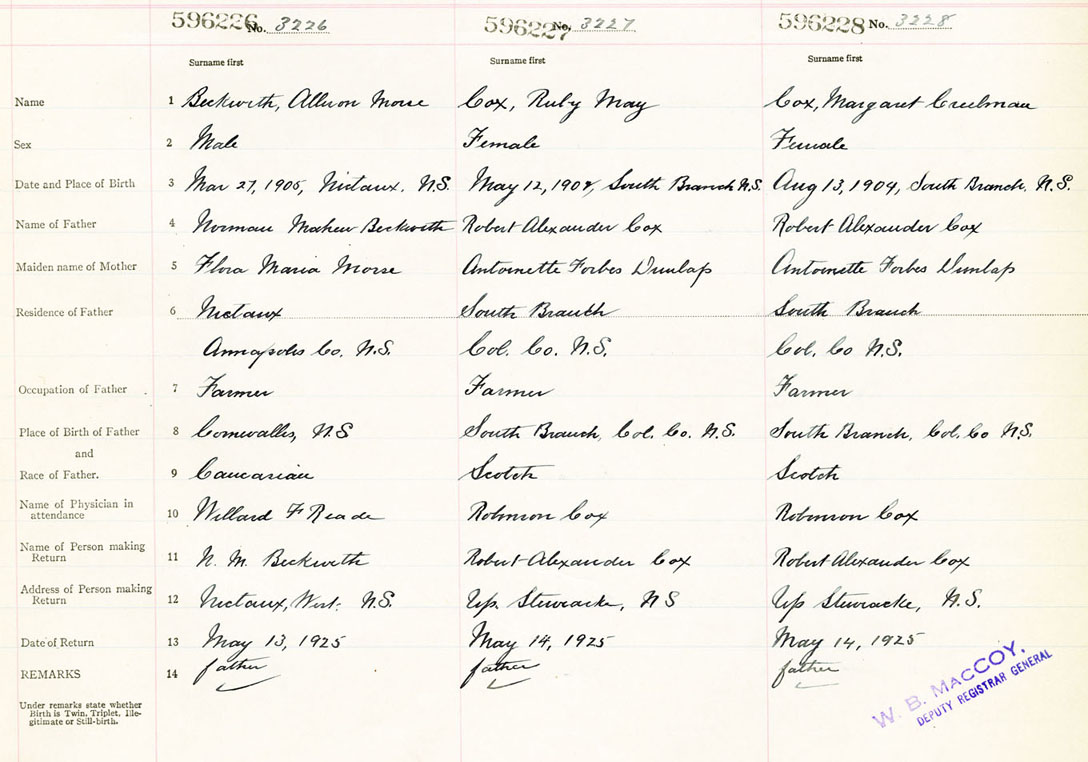 596226 No. 3226 596227 No. 3227 596228 No. 3228
Surname first Surname first Surname first
Name 1 Beckwith, Allison Morse Cox, Ruby May Cox, Margaret Creelman
Sex 2 Male Female Female
Date and Place of Birth 3 Mar 27, 1905, Nictaux, N.S. May 12, South Branch N.S. Aug 13, 1904, South Branch, N.S.
Name of Father 4 Norman Beckwith Robert Alexander Cox Robert Alexander Cox
Maiden name of Mother 5 Flora Maria Morse Antoinette Forbes Dunlap Antoinette Forbes Dunlap
Residence of Father 6 Nictaux South Branch South Branch
Annapolis Co. N.S. Col. Co. N.S. Col. Co N.S.
Occupation of Father 7 Farmer Farmer Farmer
Place of Birth of Father 8 Cornwallis, N.S South Branch, Col. Co. N.S. South Branch, Col. Co N.S.
and
Race of Father. 9 Caucasian Scotch Scotch
Name of Physician in
attendance 10 Willard F Reade Robinson Cox Robinson Cox
Name of Person making
Return 11 N. M. Beckwith Robert Alexander Cox Robert Alexander Cox
Address of Person making
Return 12 Nictaux, West. N.S. Up. Stewiacke, N S Up Stewiacke, N.S.
Date of Return 13 May 13, 1925 May 14, 1925 May 14, 1925
REMARKS 14 father father father
Under remarks state whether
Birth is Twin, Triplet, Ille-
gitimate or Still-birth.
W. B. MACCOY,
DEPUTY REGISTRAR GENERAL